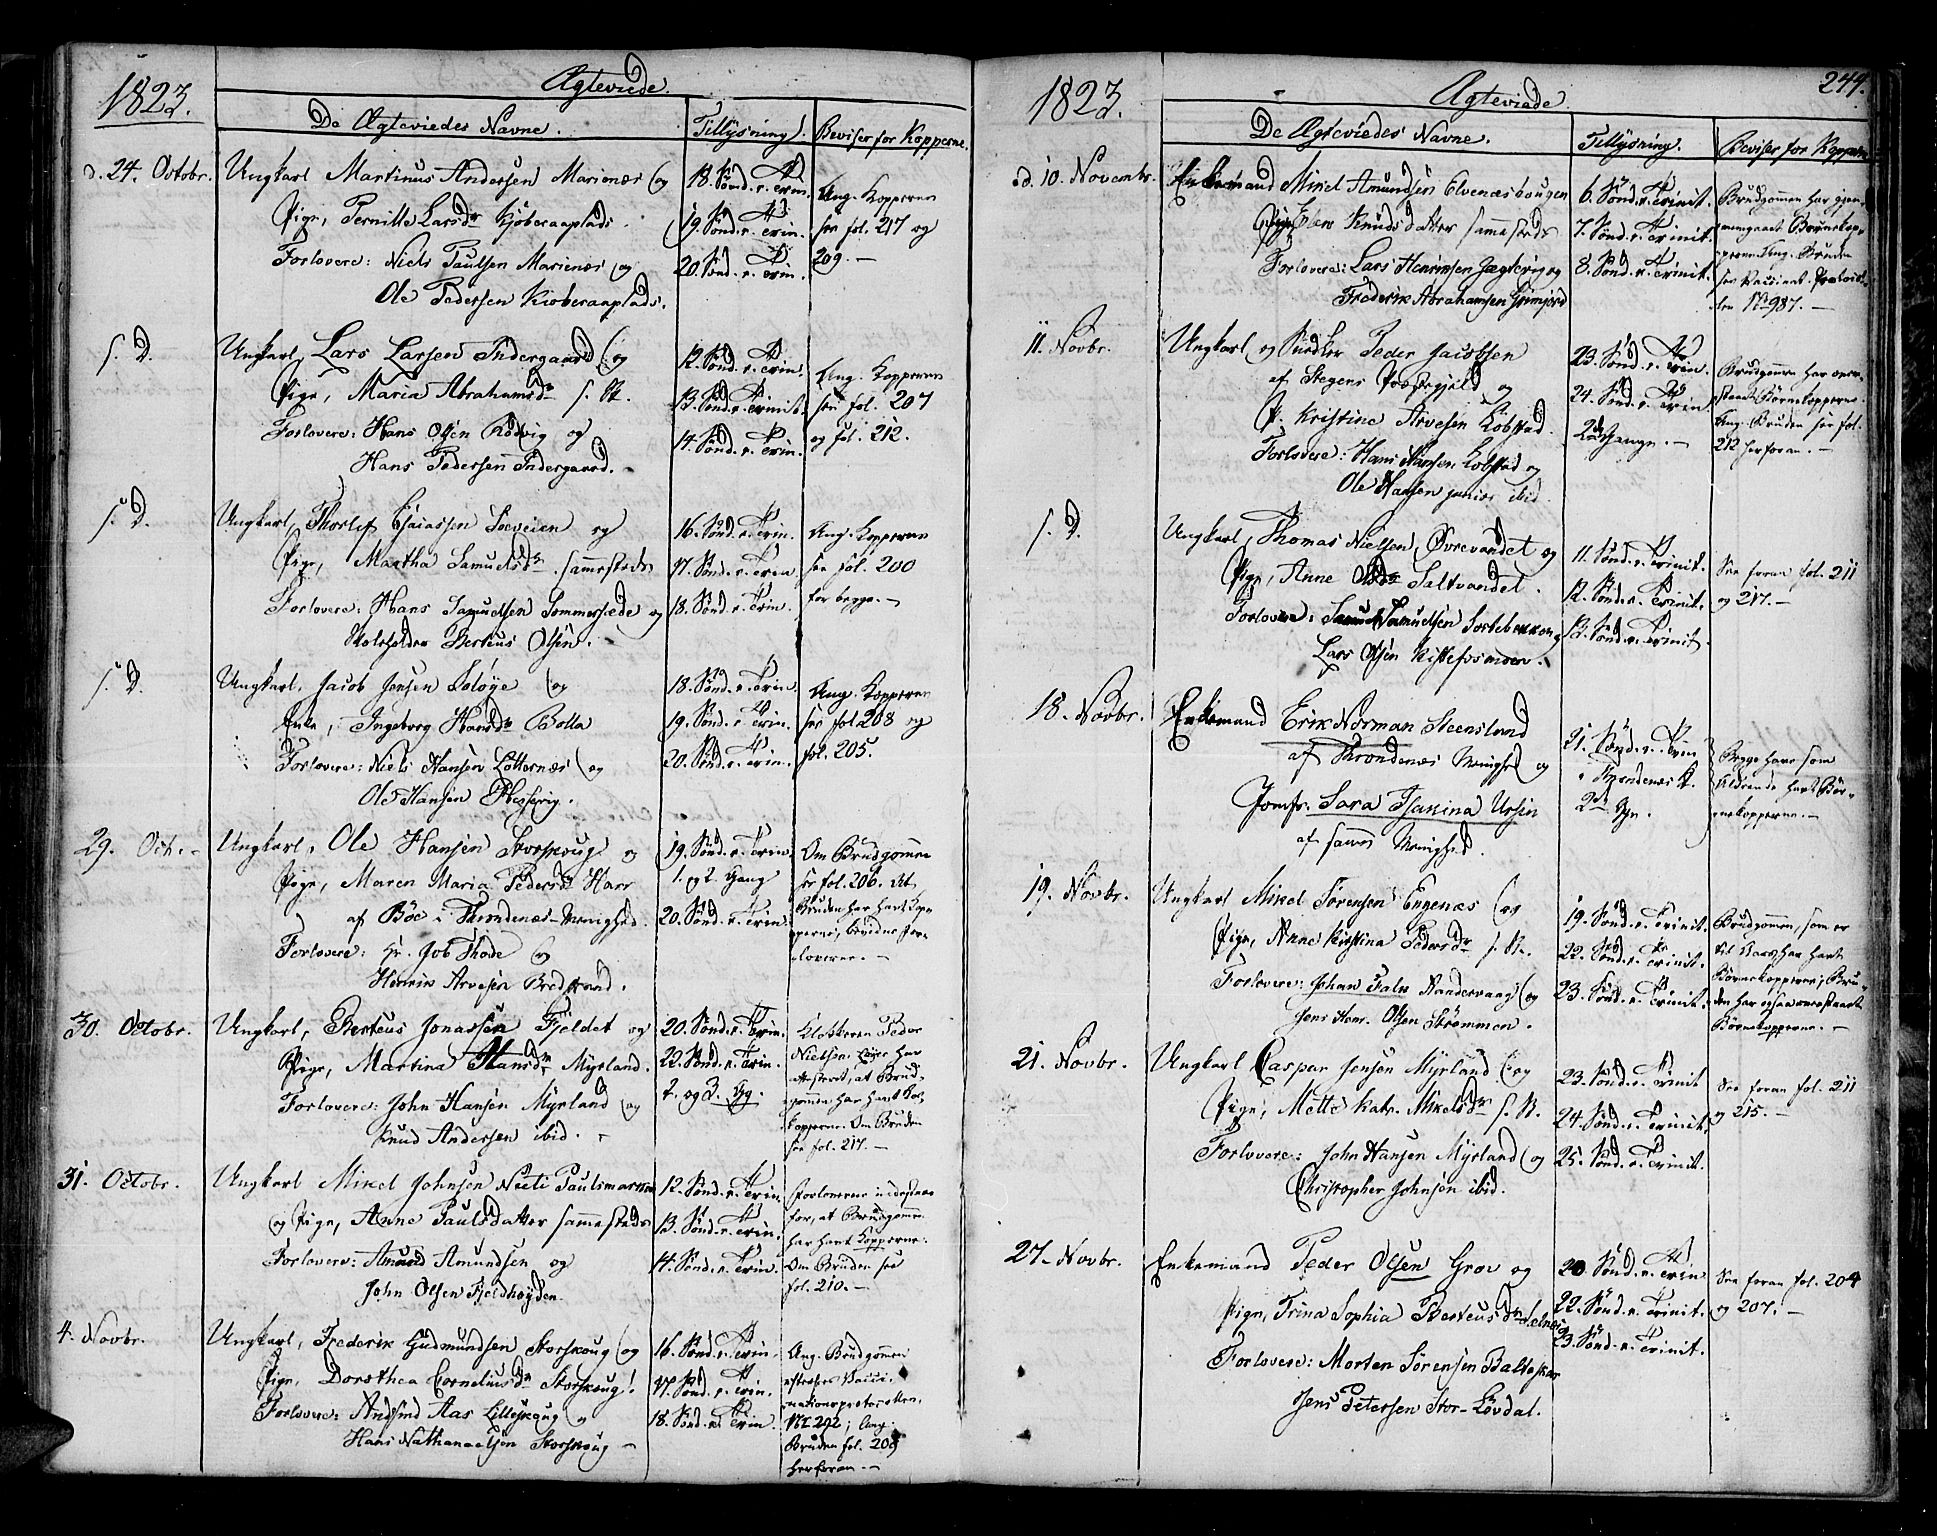 1823.
Ægteviede.
De Ægteviedes Navne.
Tillysning.
Beviser for Kopperne.
d. 24. Octobr.
Ungkarl Martinus Andersen Marienæs og
Pige, Pernille Larsdr Kjøberaaplads.
Forlovere: Niels Paulsen Marienæs og
Ole Pedersen Kioberaaplads.
18. Sönd. e. Trin.
19. Sönd. e. Trin.
20. Sönd. e. Trin.
Ang. Kopperne
see fol. 217 og
209. —
s. D.
Ungkarl, Lars Larsen Indergaard og
Pige, Maria Abrahamsdr s. St.
Forlovere: Hans Olsen Rödvig og
Hans Pedersen Indergaard.
12. Sönd. e. Trin.
13. Sönd. e. Trinit.
14. Sönd. e. Trin.
Ang. Kopperne
see fol. 207
og fol. 212.
s. D.
Ungkarl, Thorlef Esaiassen Soeveien og
Pige, Martha Samuelsdr. sammesteds
Forlovere: Hans Samuelsen Sommersæde og
Skoleholder Berteus Olsen.
16. Sönd. e. Trin.
17. Sönd. e. Trin.
18. Sönd. e. Trin.
Ang. Kopperne
see fol. 200
for begge. —
s. D.
Ungkarl, Jacob Jensen Soløye og
Enke, Ingeborg Hansdr Bolla
Forlovere: Niels Hansen Lötternæs og
Ole Hansen Hesserig.
18. Sönd. e. Trin.
19. Sönd. e. Trin.
20. Sönd. e. Trin.
Ang. Kopperne
see fol. 208 og
fol. 205.
29. Oct. -
Ungkarl, Ole Hansen Storskoug og
Pige, Maren Maria Pedersdr Harr
af Böe i Throndenæs-Menighed.
Forlovere: Hr. Job Thode og
Henrik Arvesen Bredstrand.
19. Sönd. e. Trin.
1. og 2. Gang
20. Sönd. e. Trin.
Om Brudgommen
see fol. 206. At
Bruden har havt Kop-
perne, bevidne For-
loverne. —
30. Octobr.
Ungkarl, Berteus Jonassen Fjeldet og
Pige, Martina Hansdr Myrland.
Forlovere: John Hansen Myrland og
Knud Andersen ibid. -
20. Sönd. e. Trin.
22. Sönd. e. Trin.
2. og 3. Gg.
Klokkeren Peder
Nielsen har
attesteret, at Brud-
gommen har havt
kopperne. Om Bruden
see fol. 217. —
31. Octobr.
Ungkarl Mikel Johnsen Neeti Paulsmarken
og Pige, Anne Paulsdatter sammesteds
Forlovere: Amund Amundsen og
John Olsen Fjeldhøyden.
12. Sönd. e. Trin.
13. Sönd. e. Trin.
14. Sönd. e. Trin.
Forloverne indestaae
for, at Brudgommen
har havt Kopperne.
Om Bruden see
fol. 210. —
4. Novbr.
Ungkarl, Frederik Gudmundsen Storskoug og
Pige, Dorothea Corneliusdr Storskoug!
Forlovere: Andfind Aas Lilleskoug og
Hans Nathanaelsen Storskoug —
16. Sönd. e. Trin.
17. Sönd. e. Trin.
18. Sönd. e. Trin.
Ang. Brudgommen
eftersees Vacci-
nationsprotocollen,
No 292; Ang.
Bruden fol. 209
herforan. —
1823.
Ægteviede.
244.
De Ægteviedes Navne.
Tillysning.
Beviser for Kopperne
d. 10. Novembr.
Enkemand Mikel Amundsen Elvenæshougen
Pige Elen Knudsdatter sammesteds
Forlovere: Lars Henriksen Jægtevig og
Frederik Abrahamsen Grimjord
6. Sönd. e. Trinit.
7. Sönd. e. Trinit.
8. Sönd. e. Trinit.
Brudgommen har gjen-
nemgaaet Börnekop-
perne. Ang. Bruden
see Vaccinat. Protocol-
len No 987. —
11. Novbr.
Ungkarl og Snedker Peder Jacobsen
af Stegens Præstegjeld og
P. Kristine Arvesen Lobstad.
Forlovere: Hans Hansen Lobstad og
Ole Hansen junior ibid.
23. Sönd. e. Trin.
24. Sönd. e. Trin.
2den Gang. —
Brudgommen har over-
staaet Börnekopperne.
Ang. Bruden see fol.
212 herforan. —
s. D.
Ungkarl, Thomas Nielsen Øvrevandet og
Pige, Anne Olsdr Saltvandet.
Forlovere: Samuel Samuelsen Sortebekken og
Lars Olsen Kistefosmoen.
11. Sönd. e. Trinit.
12. Sönd. e. Trinit.
13. Sönd. e. Trinit.
See foran fol. 211
og 217. —
18. Novbr.
Enkemand Erik Norman Steensland
af Throndenæs Menighed og
Jomfr. Sara Jsanina Ursin
af samme Menighed.
21. Sönd. e. Trin
i Trondenæs K.
2den Gg.
Begge have som
Ældrende havt Bör-
nekopperne. —
19. Novbr.
Ungkarl Mikel Sörensen Engenæs og
Pige, Anne Kirstina Pedersdr s. St.
Forlovere: Johan Falk Sandervaag og
Jens Henr. Olsen Strømmen.
19. Sönd. e. Trinit.
22. Sönd. e. Trinit.
23. Sönd. e. Trinit.
Brudgommen, som er
til Aars, har havt
Börnekopperne; Bru-
den har ogsaa overstaaet
Börnekopperne. —
21. Novbr.
Ungkarl Caspar Jensen Myrland og
Pige, Mette Katr. Mikelsdr s. St.
Forlovere: John Hansen Myrland og
Christopher Johnsen ibid.
23. Sönd. e. Trinit
24. Sönd. e. Trinit.
25. Sönd. e. Trinit.
See foran fol. 211
og 215. —
27. Novbr.
Enkemand Peder Olsen Grov og
Pige, Trina Sophia Berteusdr Selnes
Forlovere: Morten Sörensen Balteskar
Jens Petersen Stor-Lövdal.
20 Sönd. e. Trin
22. Sönd. e. Trinit.
23. Sönd. e. Trinit.
See foran fol. 204
og 207. —